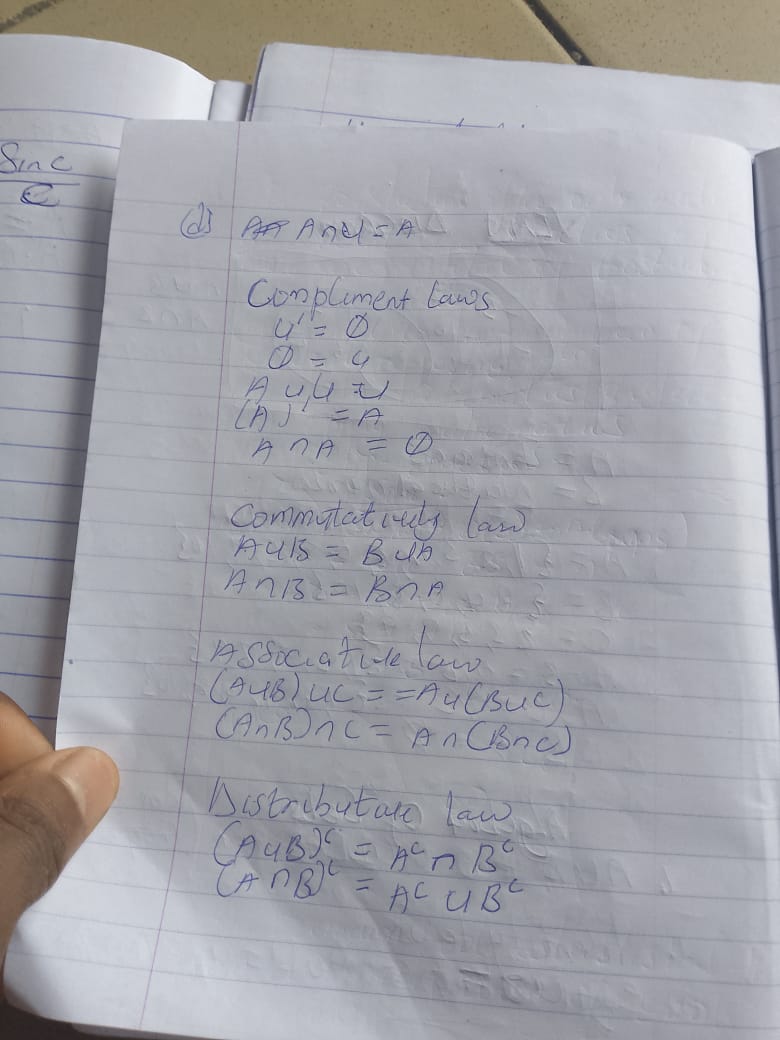 Sin c
c
(d) A∩U = A
Compliment Laws
U' = Ø
Ø = U
A ∪ U = U
(A)' = A
A ∩ A = Ø
Commutatively law
A∪B = B∪A
A∩B = B∩A
Associative law
(A∪B)∪C = =A∪(B∪C)
(A∩B)∩C = A∩(B∩C)
Distributive law
(A∪B)ᶜ = Aᶜ ∩ Bᶜ
(A∩B)ᶜ = Aᶜ ∪ Bᶜ